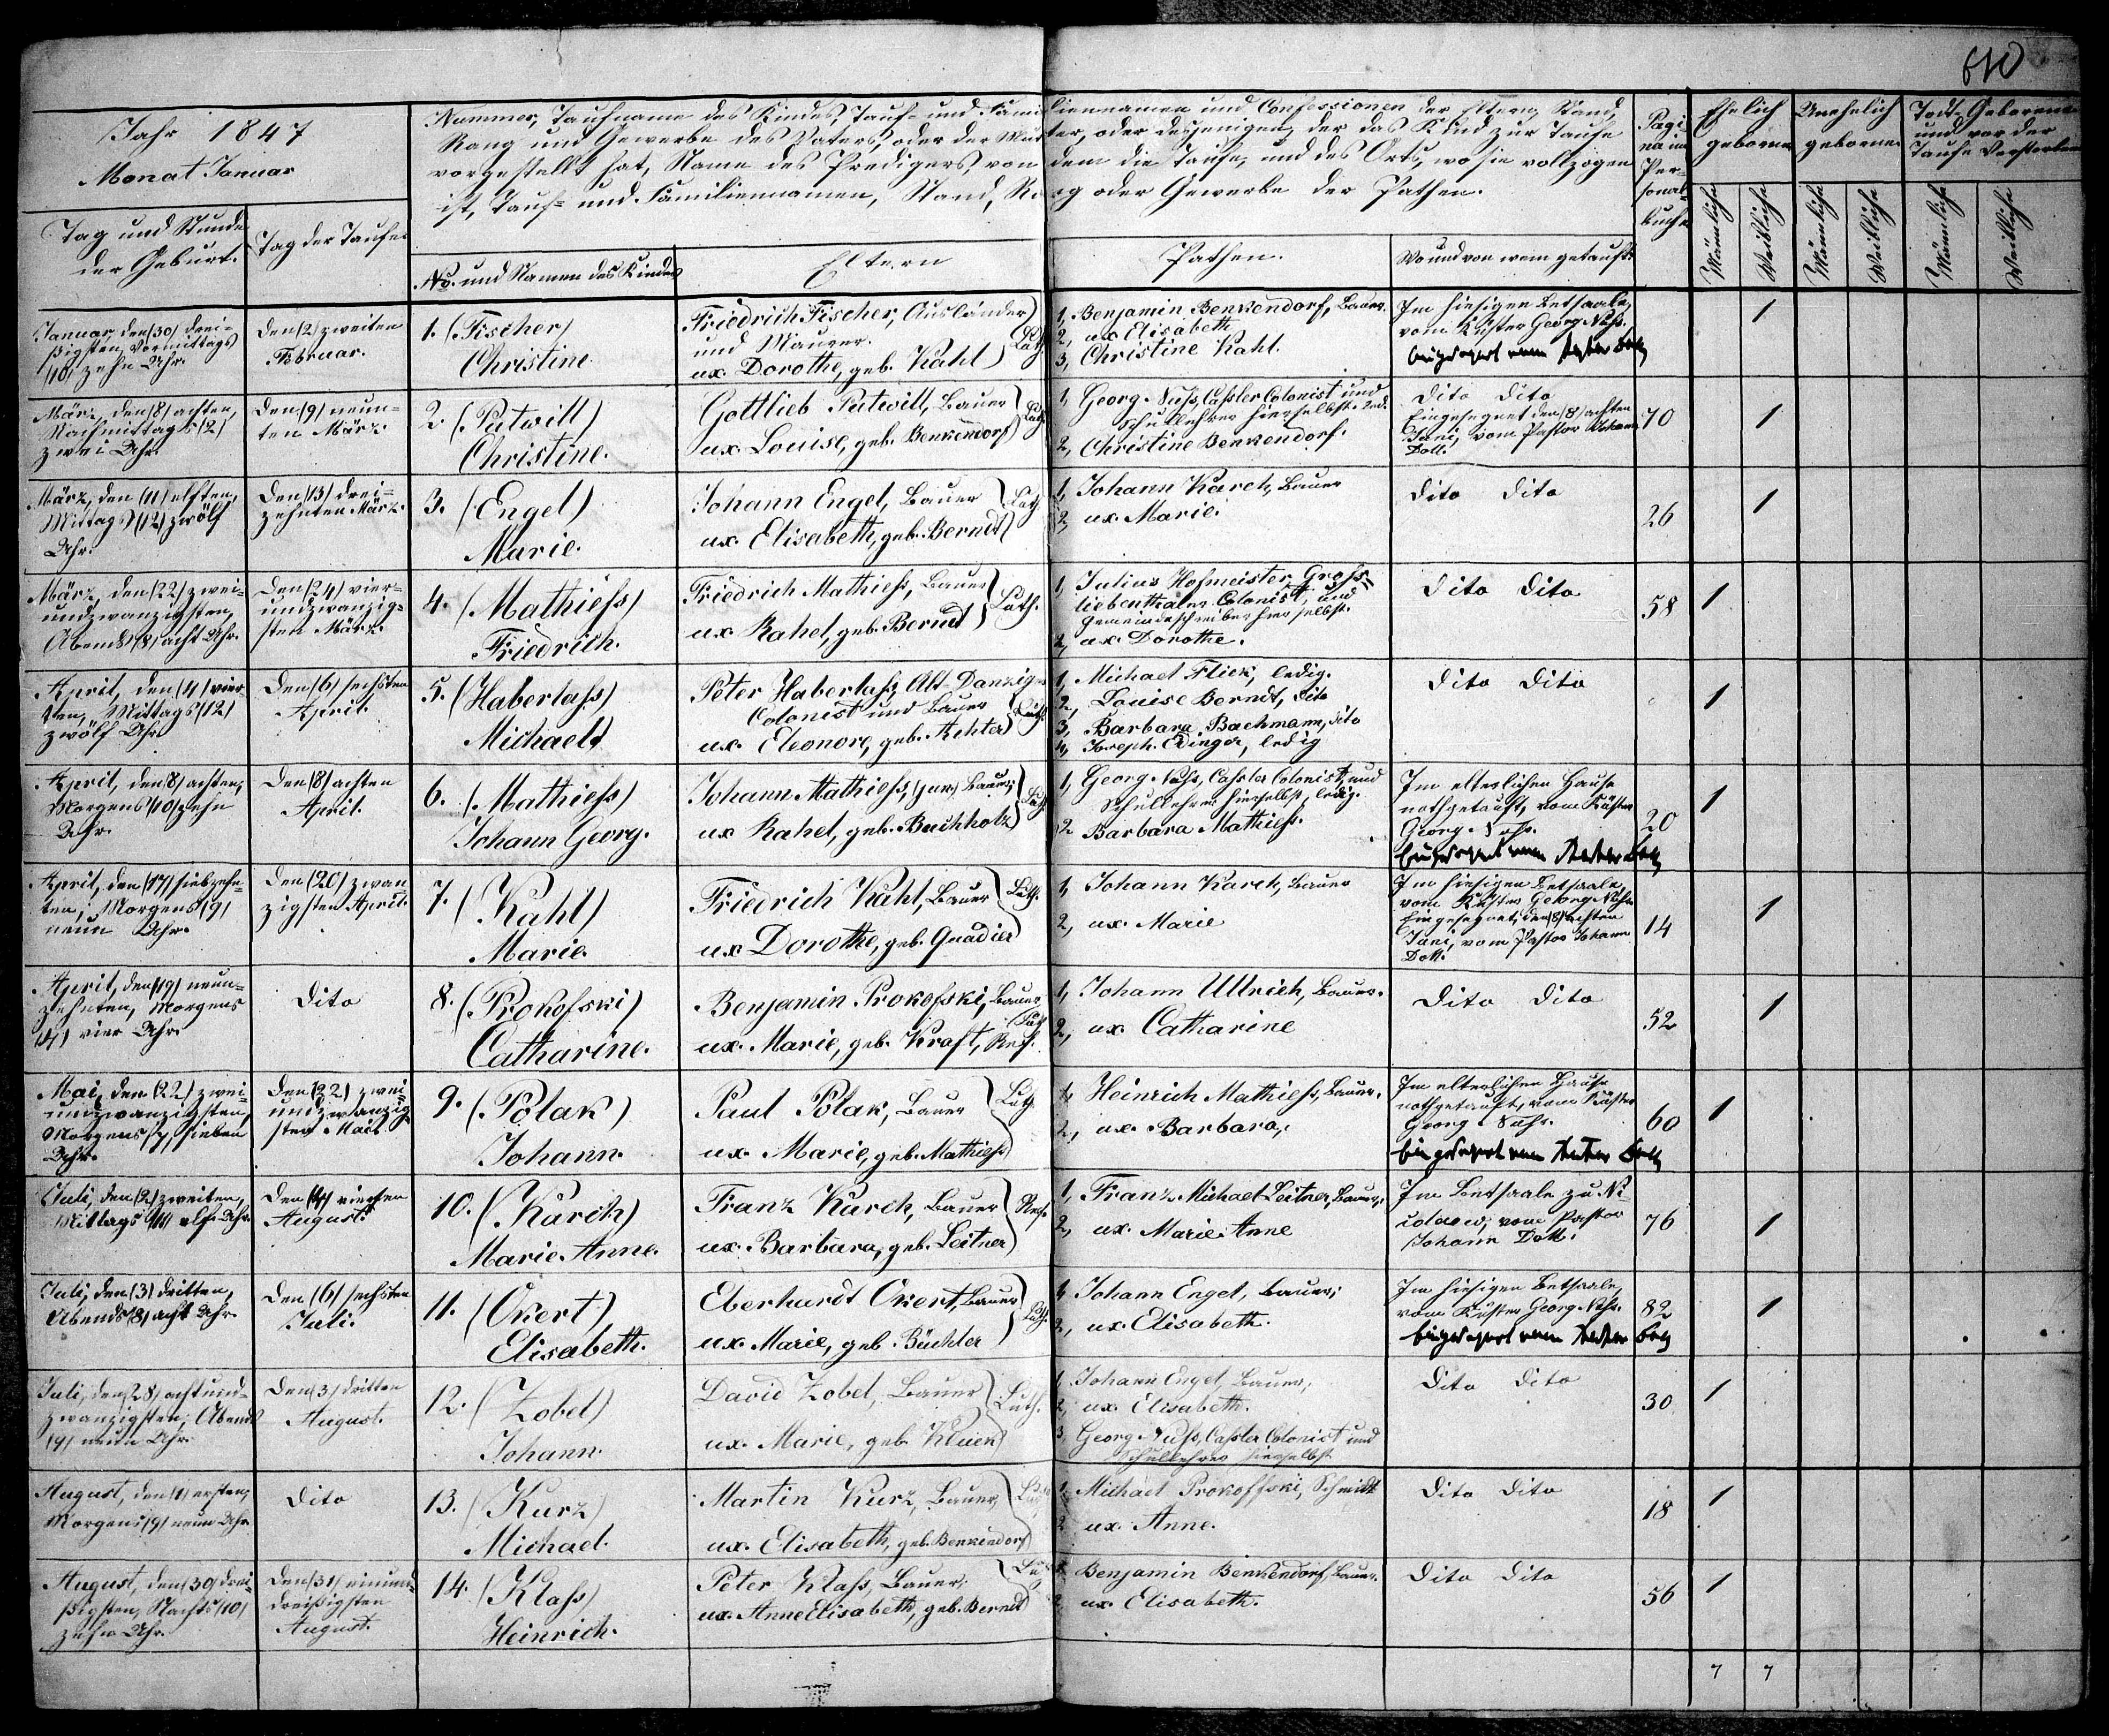 610
Jahr 1847
Monat Januar
Tag und Stunde
der Geburt.
Tag der Taufe.
Nummer, Taufname des Kindes, Tauf- und Familiennamen und Confessionen der Eltern, Stand,
Rang und Gewerbe des Vaters, oder der Mutter, oder desjenigen, der das Kind zur Taufe
vorgestellt hat, Name des Predigers, von dem die Taufe, und des Orts, wo sie vollzogen
ist, Tauf- und Familiennamen, Stand, Rang oder Gewerbe der Pathen.
No. und Namen des Kindes
Eltern
Pathen.
Wo und von wem getauft.
Pagi-
na im
Per-
sonal-
buche
Ehelich
geborene
Unehelich
geborene
Todt-Geborene
und vor der
Taufe Verstorbene
Männliche
Weibliche
Männliche
Weibliche
Männliche
Weibliche
Januar, den (30) drei-
ßigsten, Vormittags
(10) zehn Uhr.
Den (2) zweiten
Februar.
1. (Fischer)
Christine
Friedrich Fischer, Ausländer
und Maurer.
ux. Dorothe, geb. Kahl
Luth.
1, Benjamin Benkendorf, Bauer.
2, ux Elisabeth
3, Christine Kahl.
Im hiesigen Betsaale,
vom Küster Georg Nuss.
1
März, den (8) achten,
Nachmittags (2)
zwei Uhr.
Den (9) neun-
ten März.
2. (Putwill)
Christine.
Gottlieb Putwill, Bauer
ux. Louise, geb. Benkendorf
Luth.
1, Georg Nuss, Cassler Colonist und
Schullehrer hierselbst. led.
2, Christine Benkendorf.
Dito Dito
Eingesegnet den (8) achten
Juni, vom Pastor Johann
Doll.
70
1
März, den (11) elften,
Mittags (12) zwölf
Uhr.
Den (13) drei-
zehnten März.
3. (Engel)
Marie.
Johann Engel, Bauer
ux. Elisabeth, geb. Berndt
Luth
1, Johann Karch, Bauer
2, ux. Marie.
Dito Dito
26
1
März, den (22) zwei-
undzwanzigsten,
Abends (8) acht Uhr.
Den (24) vier-
undzwanzig-
sten März.
4. (Mathiess)
Friedrich.
Friedrich Mathiess, Bauer
ux Rahel, geb. Berndt
Luth.
1, Julius Hofmeister, Gross-
liebenthaler Colonist, und
Gemeindeschreiber hierselbst.
2, ux. Dorothe.
Dito Dito
58
1
April, den (4) vier-
ten, Mittags (12)
zwölf Uhr
Den (6) sechsten
April.
5. (Haberlass)
Michael
Peter Haberlass, Alt-Danziger
Colonist und Bauer
ux. Eleonore, geb. Achter
Luth.
1, Michael Flick, ledig.
2, Louise Berndt, Dito
3, Barbara Bachmann, dito
4, Joseph Edinger, ledig
Dito Dito
1
April, den (8) achten,
Morgens (10) zehn
Uhr.
Den (8) achten
April.
6. (Mathiess)
Johann Georg.
Johann Mathiess, (jun.) Bauer
ux Rahel, geb. Buchholz
Luth.
1, Georg Nuss, Cassler Colonist, und
Schullehrer hierselbst, ledig.
2 Barbara Mathiess.
Im elterlichen Hause
nothgetauft, vom Küster
Georg Nuss.
20
1
April, den (17) siebzehn-
ten, Morgens (9)
neun Uhr.
Den (20) zwan-
zigsten April.
7. (Kahl)
Marie.
Friedrich Kahl, Bauer
ux Dorothe, geb. Quadier
Luth.
1, Johann Karch, Bauer
2, ux. Marie
Im hiesigen Betsaale,
vom Küster Georg Nuss
Eingesegnet, den (8) achten
Juni, vom Pastor Johann
Doll.
14
1
April, den (19) neun-
zehnten, Morgens
(4) vier Uhr.
Dito
8. (Prokofski)
Catharine.
Benjamin Prokofski, Bauer,
Luth
ux. Marie, geb. Kraft, Ref.
1, Johann Ullrich, Bauer.
2, ux. Catharine
Dito Dito
52
1
Mai, den (22) zwei-
undzwanzigsten,
Morgens (7) sieben
Uhr.
Den (22) zwei-
undzwanzig-
sten Mai.
9. (Polak)
Johann.
Paul Polak, Bauer
ux. Marie, geb. Mathiess
Luth.
1, Heinrich Mathiess, Bauer.
2, ux. Barbara.
Im elterlichen Hause
nothgetauft, vom Küster
Georg Nuss.
60
1
Juli, den (2) zweiten,
Mittags (11) elf Uhr.
Den (4) vierten
August.
10. (Karch)
Marie Anne.
Franz Karch, Bauer
ux. Barbara, geb. Leitner
Ref.
1, Franz Michael Leitner, Bauer,
2, ux. Marie Anne
Im Betsaale zu Ni-
colaew, vom Pastor
Johann Doll.
76
1
Juli, den (3) dritten,
Abends (8) acht Uhr.
Den (6) sechsten
Juli.
11. (Okert)
Elisabeth.
Eberhardt Okert, Bauer
ux. Marie, geb. Büchler
Luth.
1, Johann Engel, Bauer,
2, ux. Elisabeth.
Im hiesigen Betsaale,
vom Küster Georg Nuss.
82
1
Juli, den (28) achtund-
zwanzigsten, Abends
(9) neun Uhr.
Den (3) dritten
August.
12. (Zobel)
Johann.
David Zobel, Bauer
ux. Marie, geb. Kluck
Luth.
1, Johann Engel, Bauer,
2, ux. Elisabeth.
3, Georg Nuss, Cassler Colonist und
Schullehrer hierselbst
Dito Dito
30
1
August, den (1) ersten,
Morgens (9) neun Uhr
Dito
13. (Kurz)
Michael.
Martin Kurz, Bauer,
ux. Elisabeth, geb. Benkendorf
1, Michael Prokoffski, Schmidt
2 ux. Anne.
Dito Dito
18
1
August, den (30) drei-
ßigsten, Nachts (10)
zehn Uhr.
Den (31) einund-
dreißigsten
August.
14. (Klass)
Heinrich.
Peter Klass, Bauer,
ux. Anne Elisabeth, geb. Berndt
1, Benjamin Benkendorf, Bauer.
2, ux. Elisabeth.
Dito Dito
56
1
7 7